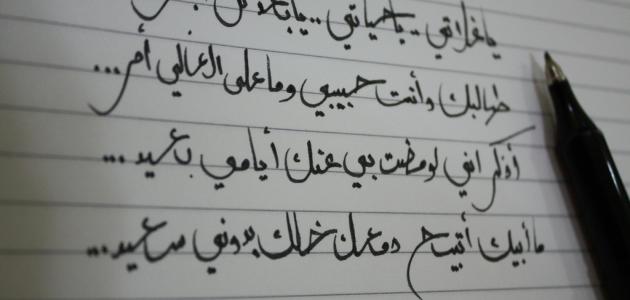 ياغلاتي .. ياحياتي ..
طالبك وأنت حبيبي وما على الغالي أمر...
أذكر اني لو مضت بي عنك أيامي بعيد ...
ما أبيك أتبيح دمعك خلك بدوني سعيد...